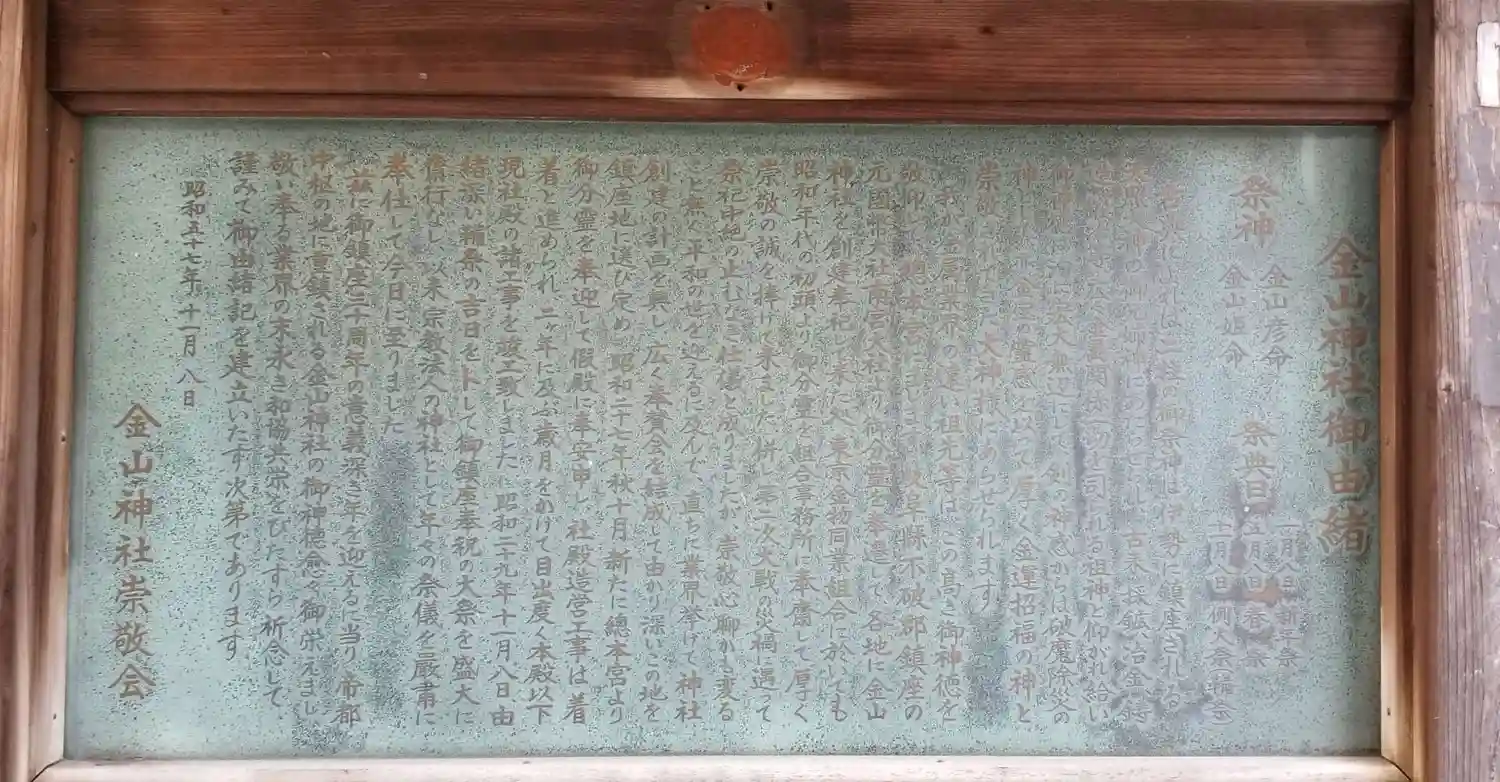 金山神社御由緒
祭神 金山彦命
金山姫命
祭典日 一月八日 新年祭
五月八日 春祭
十一月八日 例大祭鞴祭
二柱の御祭神は伊勢に鎮座される
天照大神の御兄姉神にあたらせられ古来採鉱、冶金、鋳
金属関係一切を司どれる祖神と仰がれ給い
御神徳は広大無辺にして剣の神感からは破魔除災の
神とし金の霊感を以って厚く金運招福の神と
崇敬されている大神様にあらせられます
わが金属業界の遠い祖先等はこの高き御神徳を
敬仰し総本宮にまします岐阜縣不破郡鎮座の
元國幣大社南宮大社より御分霊を奉遷して各地に金山
神社を創建奉祀して来た処、東京金物同業組合に於ても
昭和年代の初頭より御分霊を組合事務所に奉齋して厚く
崇敬の誠を捧げて来ました、併し第二次大戦の災禍に遇て
祭祀中絶の止むなき仕儀と成りましたが、崇敬心聊かも変る
こと無く平和の世を迎えるに及んで、直ちに業界挙げて神社
創建の計画を興し、広く奉賛会を結成して由かり深いこの地を
鎮座地に選び定め、昭和二十七年秋十月新たに總本宮より
御分霊を奉迎して假殿に奉安申し、社殿造営工事は着
着と進められ、二ヶ年に及ぶ歳月をかけて目出度く本殿以下
現社殿の諸工事を竣工致しました、昭和二十九年十一月八日由
緒深い鞴祭の吉日を卜して御鎮座奉祝の大祭を盛大に
齋行なし、以来宗教法人の神社として年々の祭儀を厳粛に
奉仕して今日に至りました
茲に御鎮座三十周年の意義深き年を迎えるに当り、帝都
中枢の地に重鎮される金山神社の御神徳愈々御栄えまし
敬い奉る業界の末永き和協共栄をひたすら祈念して
謹みて御由緒記を建立いたす次第であります
昭和五十七年十一月八日
金山神社崇敬会